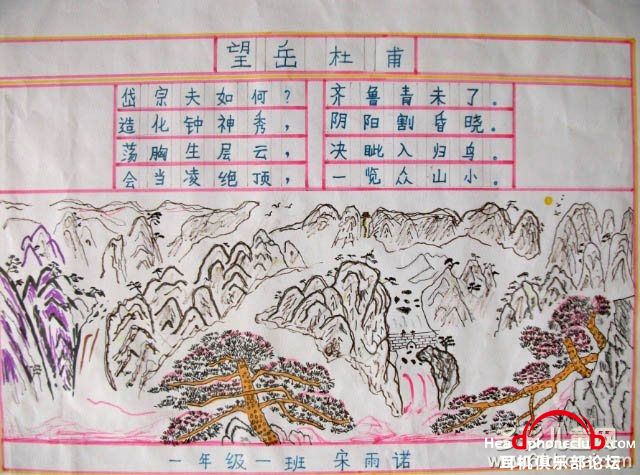 望岳 杜甫
岱宗夫如何？ 齐鲁青未了。
造化钟神秀， 阴阳割昏晓。
荡胸生层云， 决眦入归鸟。
会当凌绝顶， 一览众山小。
一年级一班 宋雨诺
Headphoneclub.com
耳机俱乐部论坛